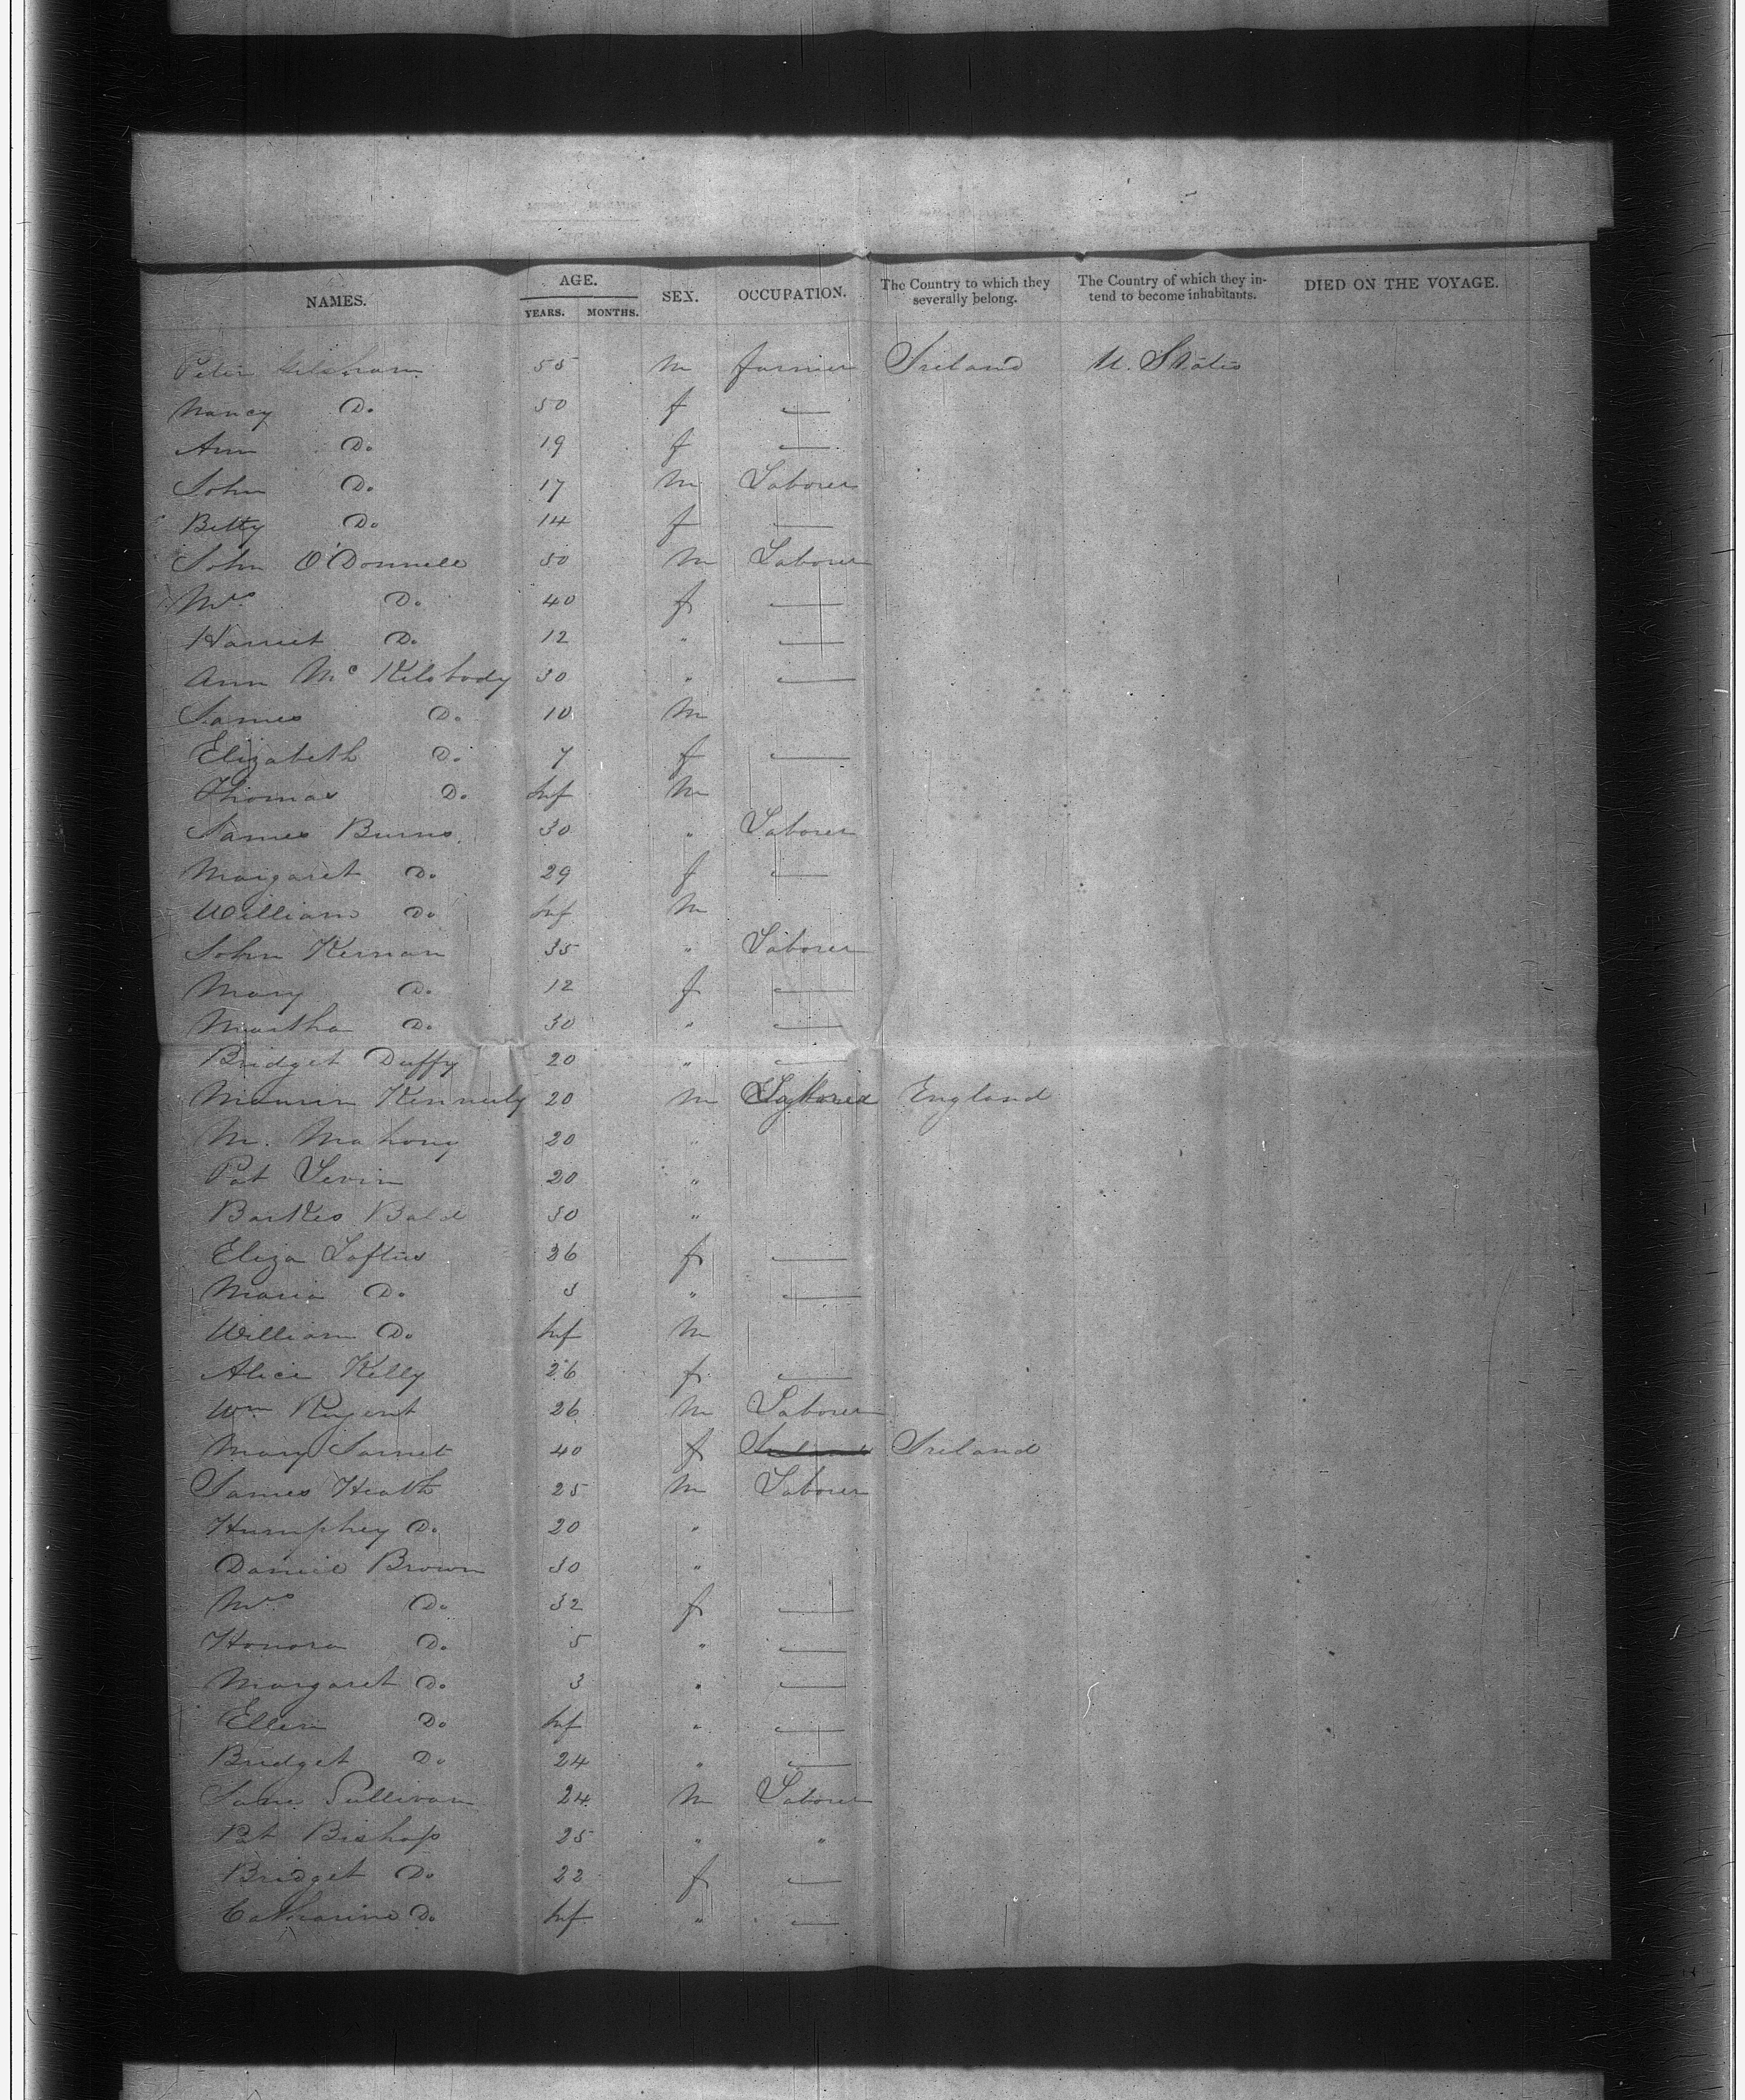 NAMES. AGE. YEARS. MONTHS. SEX. OCCUPATION. The Country to which they severally belong. The Country of which they intend to become inhabitants. DIED ON THE VOYAGE.
Peter 55 m farmer Ireland U. States
Nancy Do 50 f —
Ann Do 19 f —
John Do 17 m Laborer
Betty Do 14 f —
John O'Donnell 50 m Laborer
Mrs Do 40 f —
Harriet Do 12 " —
Ann Mc Kilsbody 30 " —
James Do 10 m
Elizabeth Do 7 f —
Thomas Do Inf m
James Burns 30 " Laborer
Margaret Do 29 f —
William Do Inf m
John Kernan 35 " Laborer
Mary Do 12 f —
Martha Do 30 " —
Bridget Duffy 20 " —
Kennedy 20 m England
M. Mahony 20 "
Pat Levin 20 "
Bald 30 "
Eliza Loftus 26 f —
Maria Do 3 " —
William Do Inf m
Alice Kelly 26 f —
Wm 26 m Laborer
Mary 40 f Ireland Ireland
James Heath 25 m Laborer
Humphrey Do 20 "
Daniel Brown 30 "
Mrs Do 32 f —
Honora Do 5 " —
Margaret Do 3 " —
Ellen Do Inf " —
Bridget Do 24 " —
Sullivan 24 m Laborer
Pat Bishop 25 " "
Bridget Do 22 f —
Catharine Do Inf " —